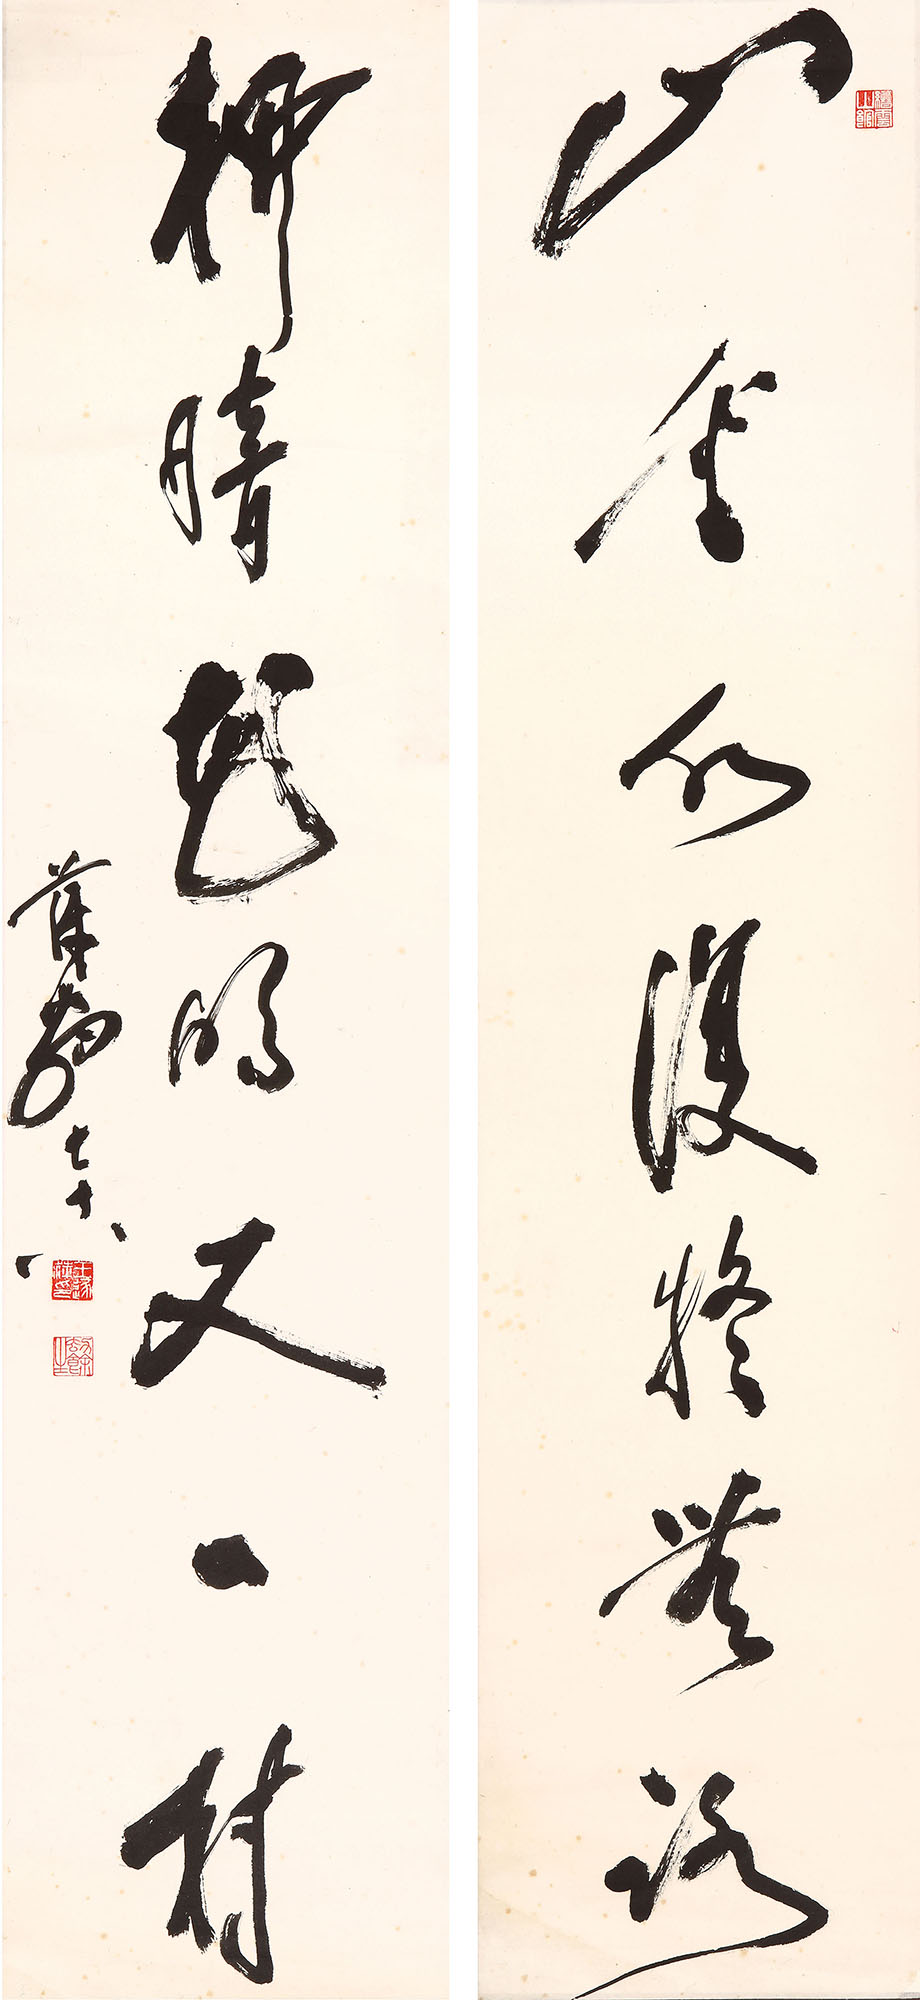 山重水復疑無路
柳暗花明又一村
七十八